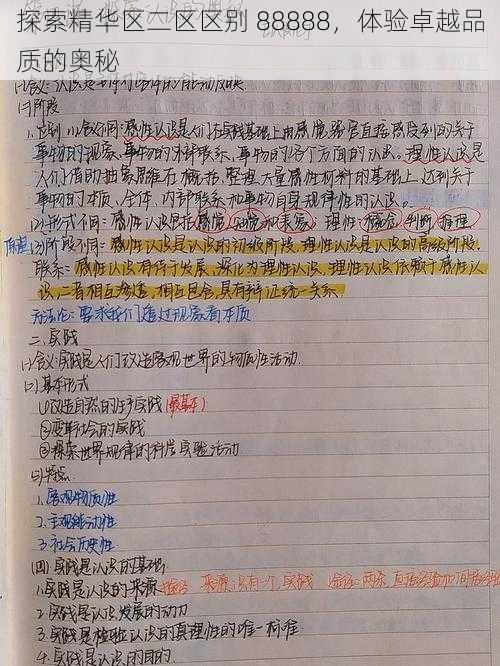 探索精华区二区区别 88888，体验卓越品
质的奥秘
(2)阶段
1.区别：(1)含义不同：感性认识是人们在实践基础上由感觉器官直接感受到的关于
事物的现象、事物的外部联系、事物的各个方面的认识。理性认识是
人们借助抽象思维在概括、整理大量感性材料的基础上，达到关于
事物的本质、全体、内部联系和事物自身规律性的认识。
(2)形式不同：感性认识包括感觉、知觉和表象；理性：概念、判断、推理
(3)阶段不同：感性认识是认识的初级阶段，理性认识是认识的高级阶段。
联系：感性认识有待于发展、深化为理性认识，理性认识依赖于感性认
识，二者相互渗透，相互包含，具有辩证统一关系
方法论：要求我们透过现象看本质
二、实践
(一)含义：实践是人们改造客观世界的物质性活动.
(二)基本形式
①改造自然的生产实践(最基本)
②变革社会的实践
③探索世界规律的科学实验活动
(三)特点
1.客观物质性
2.主观能动性
3.社会历史性
(四)实践是认识的基础
1.实践是认识的来源 来源只有一个，实践
2.实践是认识发展的动力
3.实践是检验认识的真理性的唯一标准
4.实践是认识的目的